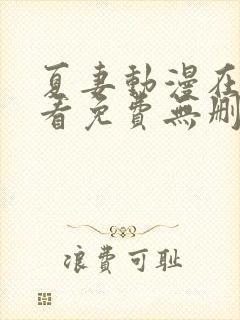 夏妻動漫在
看免費無刪
浪費可耻